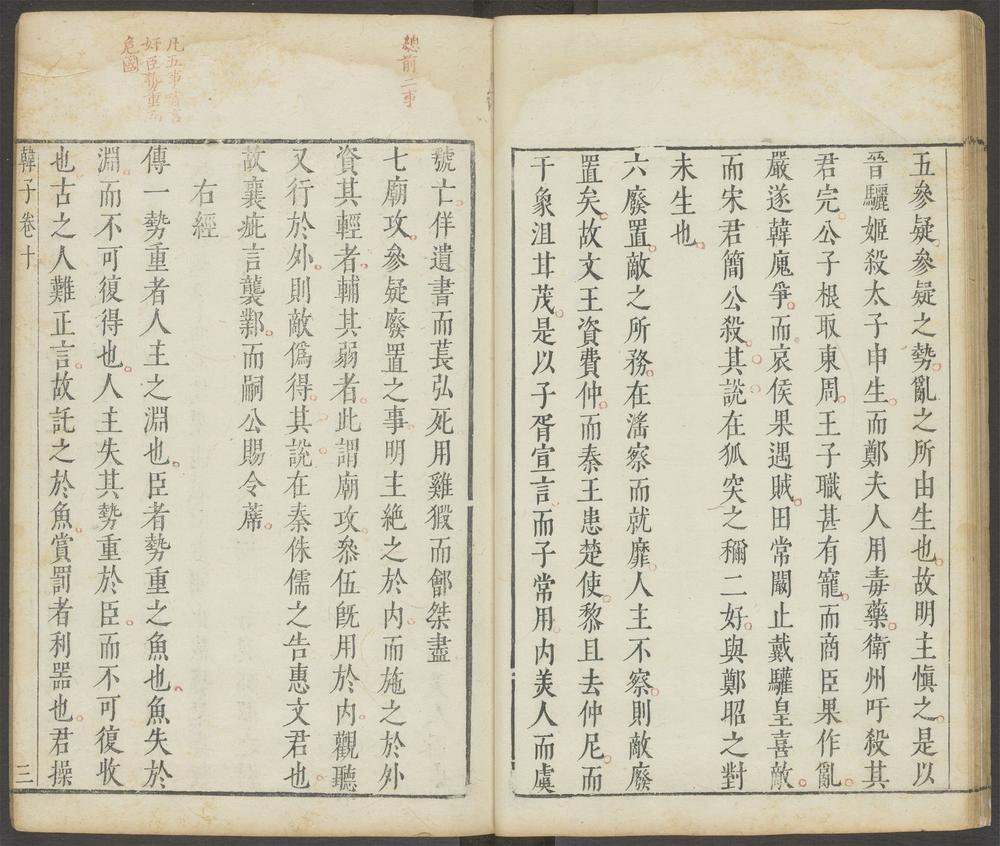 五參疑參疑之勢亂之所由生也故明主愼之是以
晉驪姬殺太子申生而鄭夫人用毒藥衛州吁殺其
君完公子根取東周王子職甚有寵而商臣果作亂
嚴遂韓廆爭而哀侯果遇賊田常闞止戴驩皇喜敵
而宋君簡公殺其說在狐突之稱二好與鄭昭之對
未生也
六廢置敵之所務在滛察而就靡人主不察則敵廢
置矣故文王資費仲而秦王患楚使黎且去仲尼而
干象沮甘茂是以子胥宣言而子常用内美人而虞
總前二事
虢亡佯遺書而萇弘死用雞猳而鄶桀盡
七廟攻參疑廢置之事明主絶之於内而施之於外
資其輕者輔其弱者此謂廟攻叅伍旣用於内觀聽
又行於外則敵僞得其說在秦侏儒之告惠文君也
故襄疵言襲鄴而嗣公賜令蓆
右經
凡五事
奸臣勢重
危國
傳一勢重者人主之淵也臣者勢重之魚也魚失於
淵而不可復得也人主失其勢重於臣而不可復收
也古之人難正言故託之於魚賞罰者利器也君操
韓子卷十
三